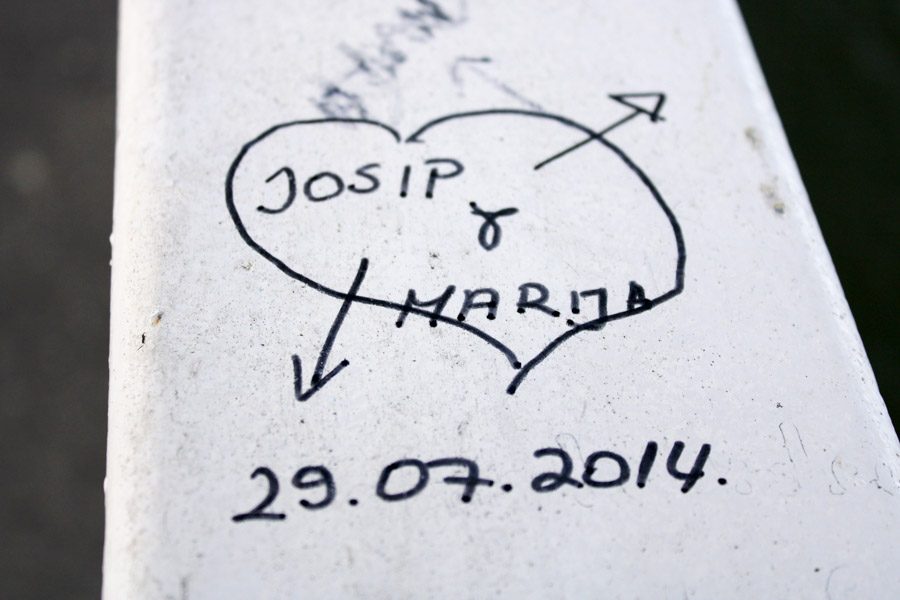 JOSIP
&
MARIJA
29.07.2014.